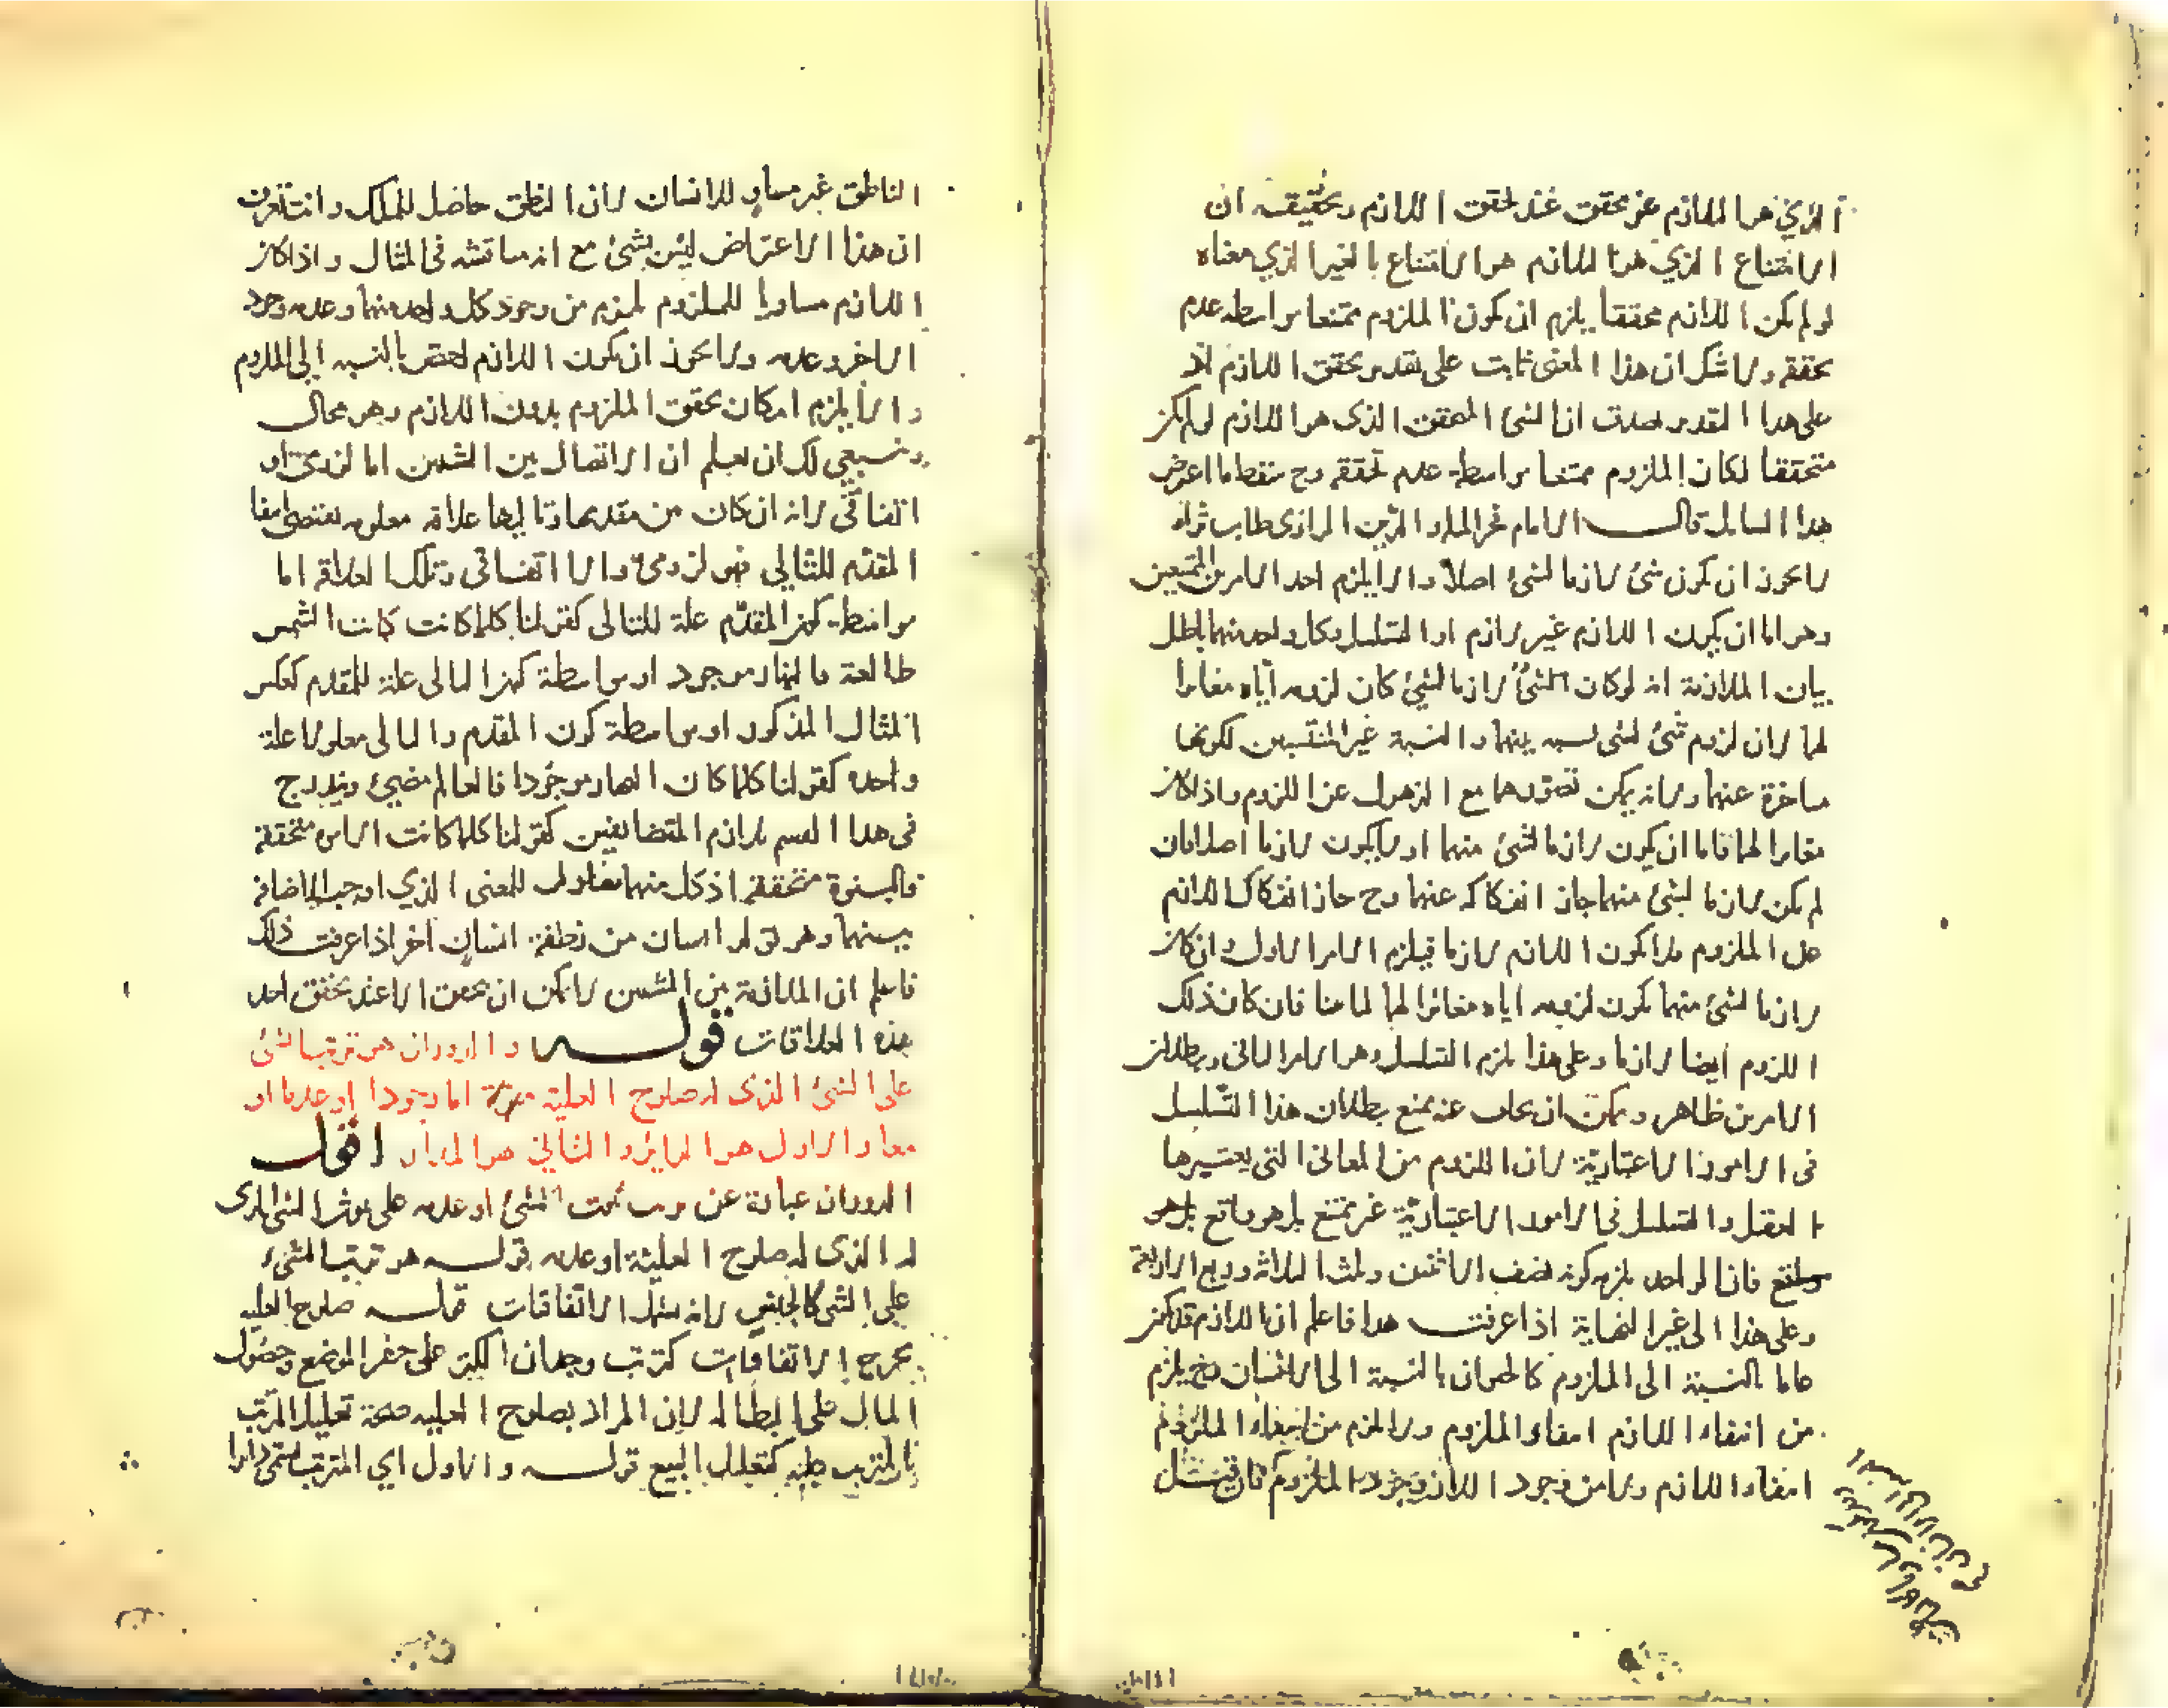 الذي هو اللازم غير محقق عند تحقق اللازم وتحقيقه ان
الامتناع الذي هو اللازم هو الامتناع بالغير الذي معناه
لو لم يكن اللازم محققا يلزم ان يكون الملزوم ممتنعا بواسطه عدم
تحققه ولا شك ان هذا المعنى ثابت على تقدير تحقق اللازم اذ
على هذا التقدير يصدق ان الشئ المحقق الذى هو اللازم لو لم يكن
متحققا لكان الملزوم ممتنعا بواسطة عدم تحققه وح سقط ما اعترض
هذا السايل قال الامام فخر المله والدين الرازى طاب ثراه
لا يجوز ان يكون شئ لازما لشئ اصلا والا يلزم احد الامرين الممتنعين
وهو اما ان يكون اللازم غير لازم او التسلسل وكل واحد منهما باطل
بيان الملازمة انه لو كان الشئ لازما لشئ كان لزومه اياه مغايرا
لهما لان لزوم شئ لشئ نسبه بينهما والنسبة غير المنتسبين لكونها
متاخرة عنهما ولانه يمكن تصورهما مع الذهول عن اللزوم واذا كان
مغايرا لهما فاما ان يكون لازما لشئ منهما او لا يكون لازما اصلا فان
لم يكن لازما لشئ منهما جاز انفكاكه عنهما وح جاز انفكاك اللازم
عن الملزوم فلا يكون اللازم لازما فيلزم الامر الاول وان كان
لازما لشئ منهما يكون لزومه اياه مغايرا لهما لما بينا فان كان ذلك
اللزوم ايضا لازما وعلى هذا يلزم التسلسل وهو الامر الثانى وبطلان
الامرين ظاهر ويمكن ان يجاب عنه بمنع بطلان هذا التسلسل
فى الامور الاعتبارية لان اللزوم من المعانى التى يعتبرها
العقل والتسلسل فى الامور الاعتبارية غير ممتنع بل هو واقع بل هو
واقع فان الواحد يلزمه كونه نصف الاثنين وثلث الثلاثه وربع الاربعة
وعلى هذا الى غير النهاية اذا عرفت هذا فاعلم ان اللازم قد يكون
عاما بالنسبة الى الملزوم كالحيوان بالنسبة الى الانسان وح يلزم
من انتفاء اللازم انتفاء الملزوم ولا يلزم من انتفاء الملزوم
انتفاء اللازم ولا من وجود اللازم وجود الملزوم فان قيل
الناطق غير مساو للانسان لان النطق حاصل للملك وانت تعرف
ان هذا الاعتراض ليس بشئ مع انه مناقشه فى المثال واذا كان
اللازم مساويا للملزوم يلزم من وجود كل واحد منهما وعدمه وجود
الاخر وعدمه ولا يجوز ان يكون اللازم اخص بالنسبه الى الملزوم
والا يلزم امكان تحقق الملزوم بدون اللازم وهو محال
وينبغي لك ان تعلم ان الاتصال بين الشيئين اما لزومى او
اتفاقى لانه ان كان بين مقدمها وتاليها علاقه معلومه تقتضى
المقدم للتالي فهو لزومى والا اتفاقى وتلك العلاقة اما
بواسطة كون المقدم علة للتالى كقولنا كلما كانت كانت الشمس
طالعة فالنهار موجود او بواسطة كون التالى علة للمقدم كعكس
المثال المذكور او بواسطة كون المقدم والتالى معلولا علة
واحده كقولنا كلما كان النهار موجودا فالعالم مضيئ ويندرج
فى هذا القسم تلازم المتضايفين كقولنا كلما كانت الابوة متحققة
فالبنوة متحققة اذ كل منهما معلول للمعنى الذي اوجب الاضافة
بينهما وهو تولد انسان من نطفة انسان اخر اذا عرفت ذلك
فاعلم ان الملازمة بين الشيئين لا يمكن ان تحقق الا عند تحقق احد
هذه العلاقات قوله والدوران هو ترتب الشئ
على الشئ الذى له صلوح العلية اما وجودا او عدما او
معا والاول هو الدائر والثاني هو المدار اقول
الدوران عبارة عن ترتب ثبوت الشئ او عدمه على ثبوت الشئ الذى
له الذى له صلوح العلية او عدمه قوله هو ترتب الشئ
على الشئ كالجنس لانه يشمل الاتفاقات قوله صلوح العليه
يخرج الاتفاقات كترتب وجدان الكنز على حفر الموضع وحصول
المال على البطاله لان المراد بصلوح العليه صحة تعليل المرتب
بالمترتب عليه كتعليل البيع قوله والاول اي المترتب يسمى دائرا